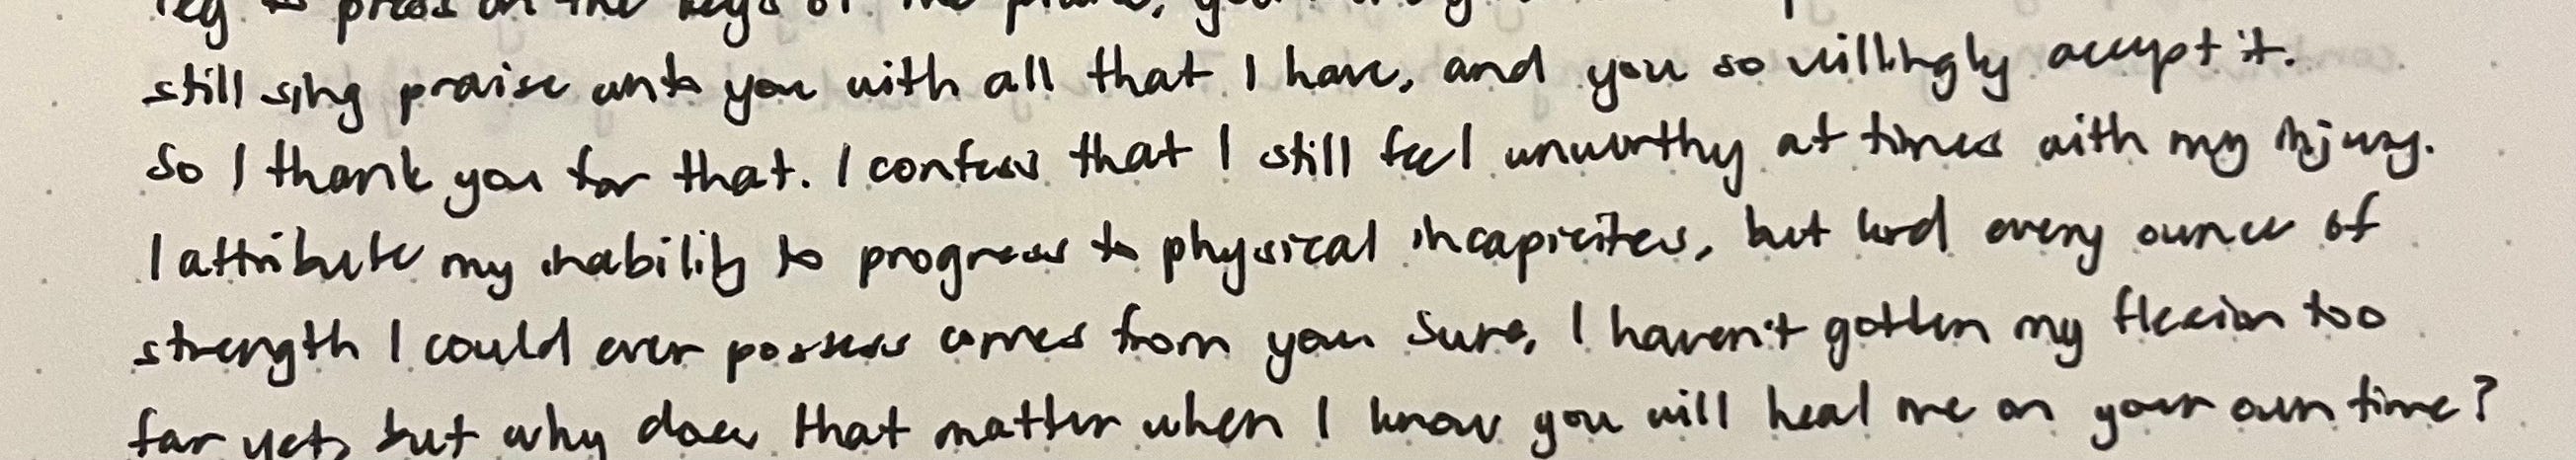 leg to press on the keys of the piano,
still sing praise unto you with all that I have, and you so willingly accept it.
So I thank you for that. I confess that I still feel unworthy at times with my injury.
I attribute my inability to progress to physical incapicites, but lord every ounce of
strength I could ever possess comes from you. Sure, I haven't gotten my flexion too
far yet, but why does that matter when I know you will heal me on your own time?